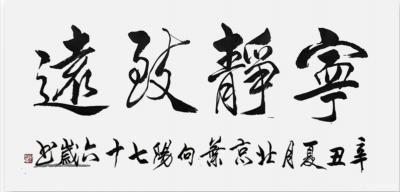 寧靜致遠
辛丑夏月北京葉向陽七十六歲書